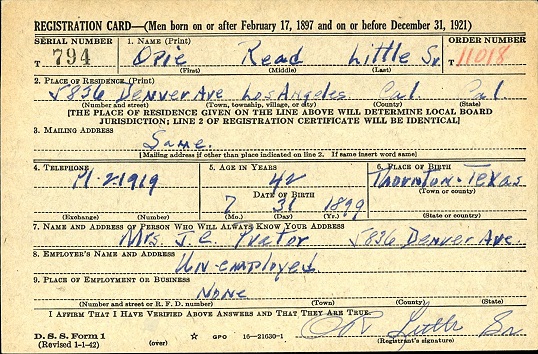 REGISTRATION CARD—(Men born on or after February 17, 1897 and on or before December 31, 1921)
SERIAL NUMBER 1. NAME (Print) ORDER NUMBER
T 794 Opie Read Little Sr. T 11018
(First) (Middle) (Last)
2. PLACE OF RESIDENCE (Print)
5836 Denver Ave Los Angeles Cal Cal.
(Number and street) (Town, township, village, or city) (County) (State)
[THE PLACE OF RESIDENCE GIVEN ON THE LINE ABOVE WILL DETERMINE LOCAL BOARD
JURISDICTION; LINE 2 OF REGISTRATION CERTIFICATE WILL BE IDENTICAL]
3. MAILING ADDRESS
Same.
[Mailing address if other than place indicated on line 2. If same insert word same]
4. TELEPHONE 5. AGE IN YEARS 6. PLACE OF BIRTH
42 Thornton-Texas
DATE OF BIRTH (Town or county)
7 31 1899
(Exchange) (Number) (Mo.) (Day) (Yr.) (State or country)
7. NAME AND ADDRESS OF PERSON WHO WILL ALWAYS KNOW YOUR ADDRESS
Mrs. J.E. 5836 Denver Ave.
8. EMPLOYER'S NAME AND ADDRESS
Un-employed
9. PLACE OF EMPLOYMENT OR BUSINESS
None
(Number and street or R. F. D. number) (Town) (County) (State)
I AFFIRM THAT I HAVE VERIFIED ABOVE ANSWERS AND THAT THEY ARE TRUE.
D. S. S. Form 1 OR Little Sr
(Revised 1-1-42) (over) ☆ GPO 16—21630-1 (Registrant's signature)